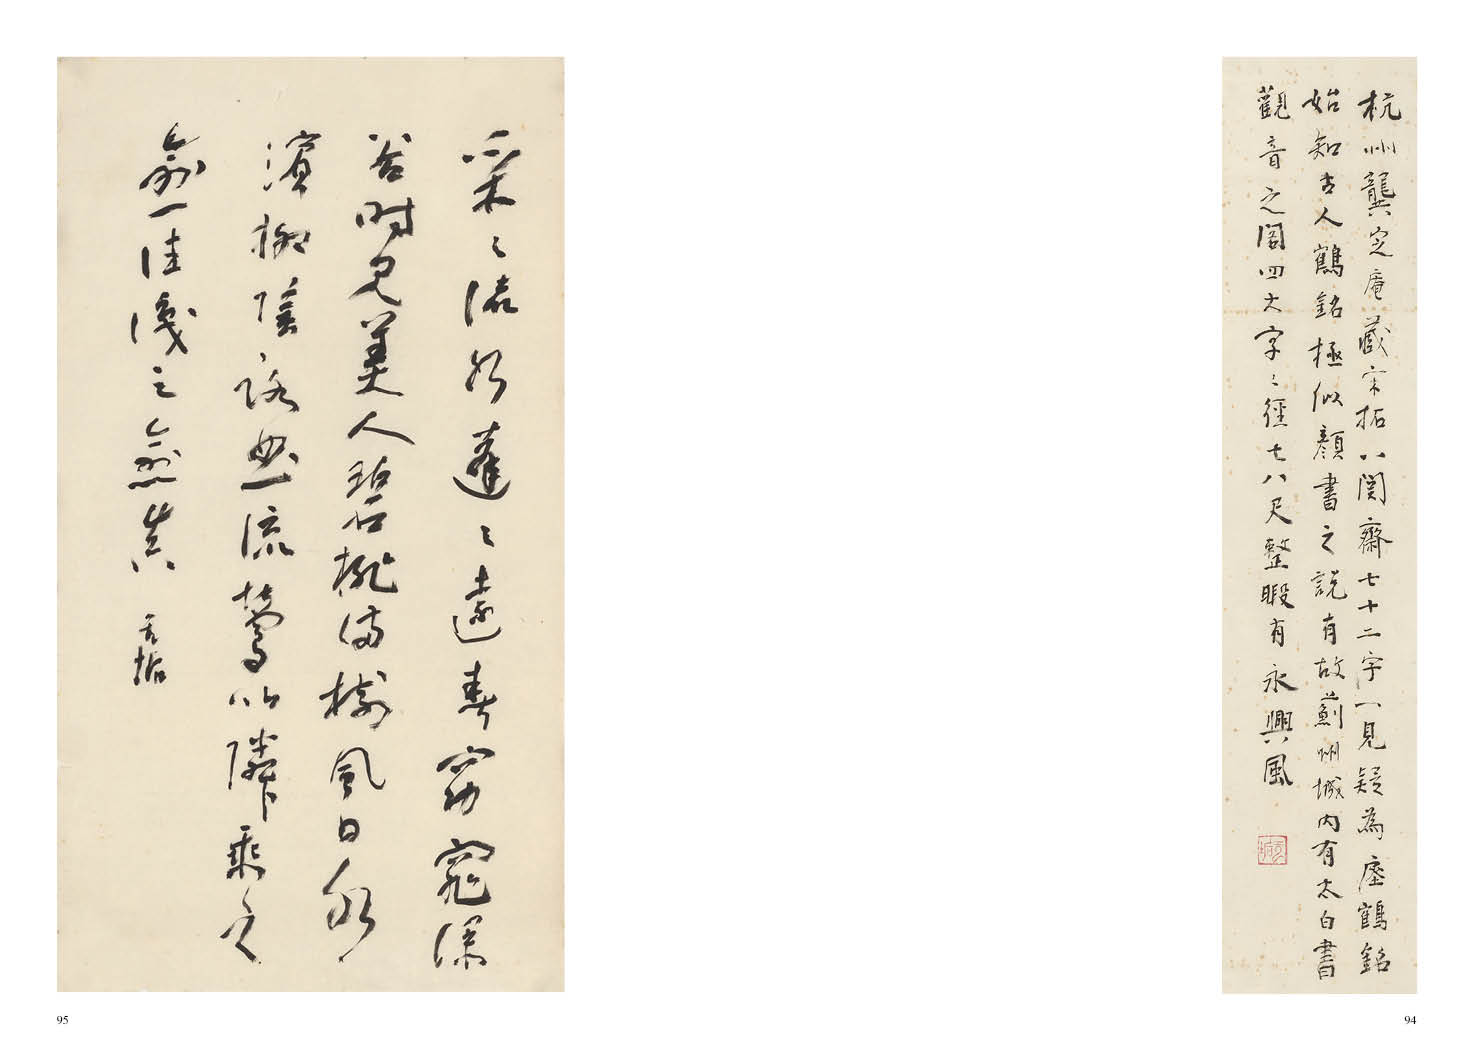 杭州龔定庵藏宋拓八関齋七十二字一見疑為瘞鶴銘
始知古人鶴銘極似顏書之說有故薊州城內有太白書
觀音之閣四大字〻徑七八尺整暇有永興風
94
采〻流水蓬〻遠春窈窕深
谷時見美人碧桃滿樹風日水
濱柳陰路曲流鶯比隣乘之
愈往識之愈真
95